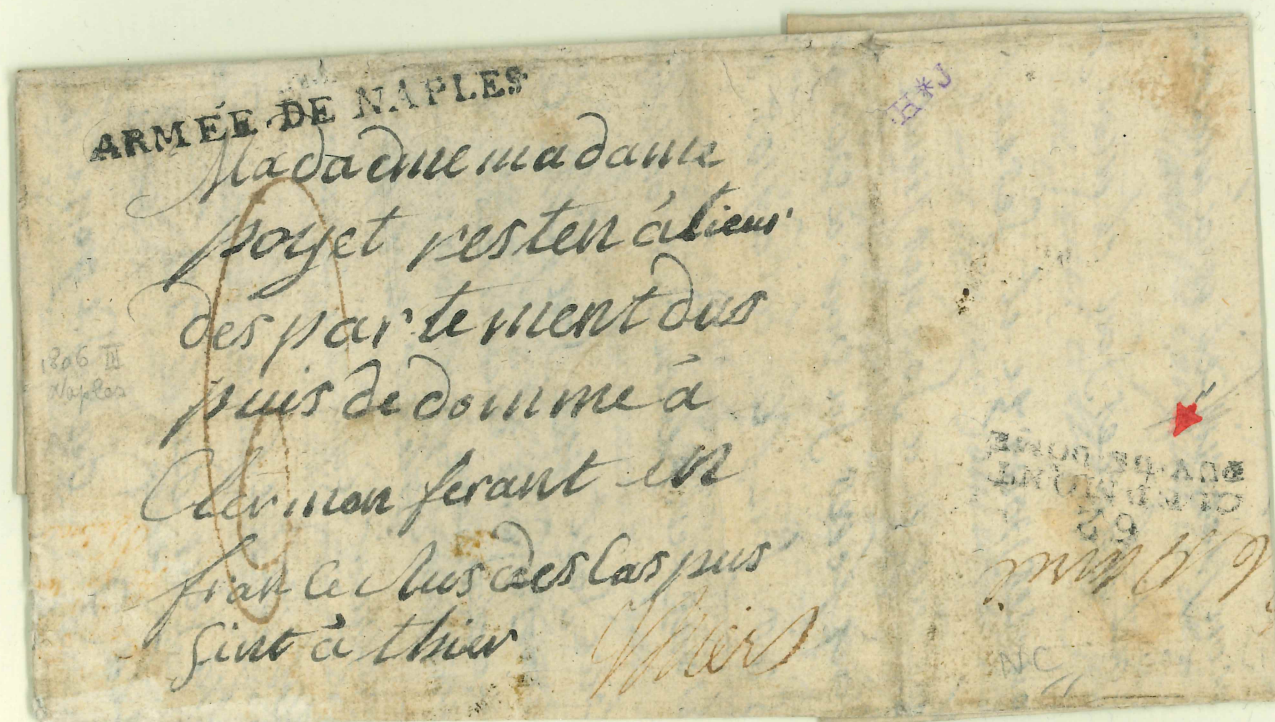 ARMÉE.DE NAPLES
Madadme madame
poyet resten à tieur
des par te ment dus
puis de domme à
Clermon ferant en
france Rus des Cas pus
sint à thier
Thiers
1806 III
Naples
H*J
PUY-DE-DOME
CLERMONT
63
NC